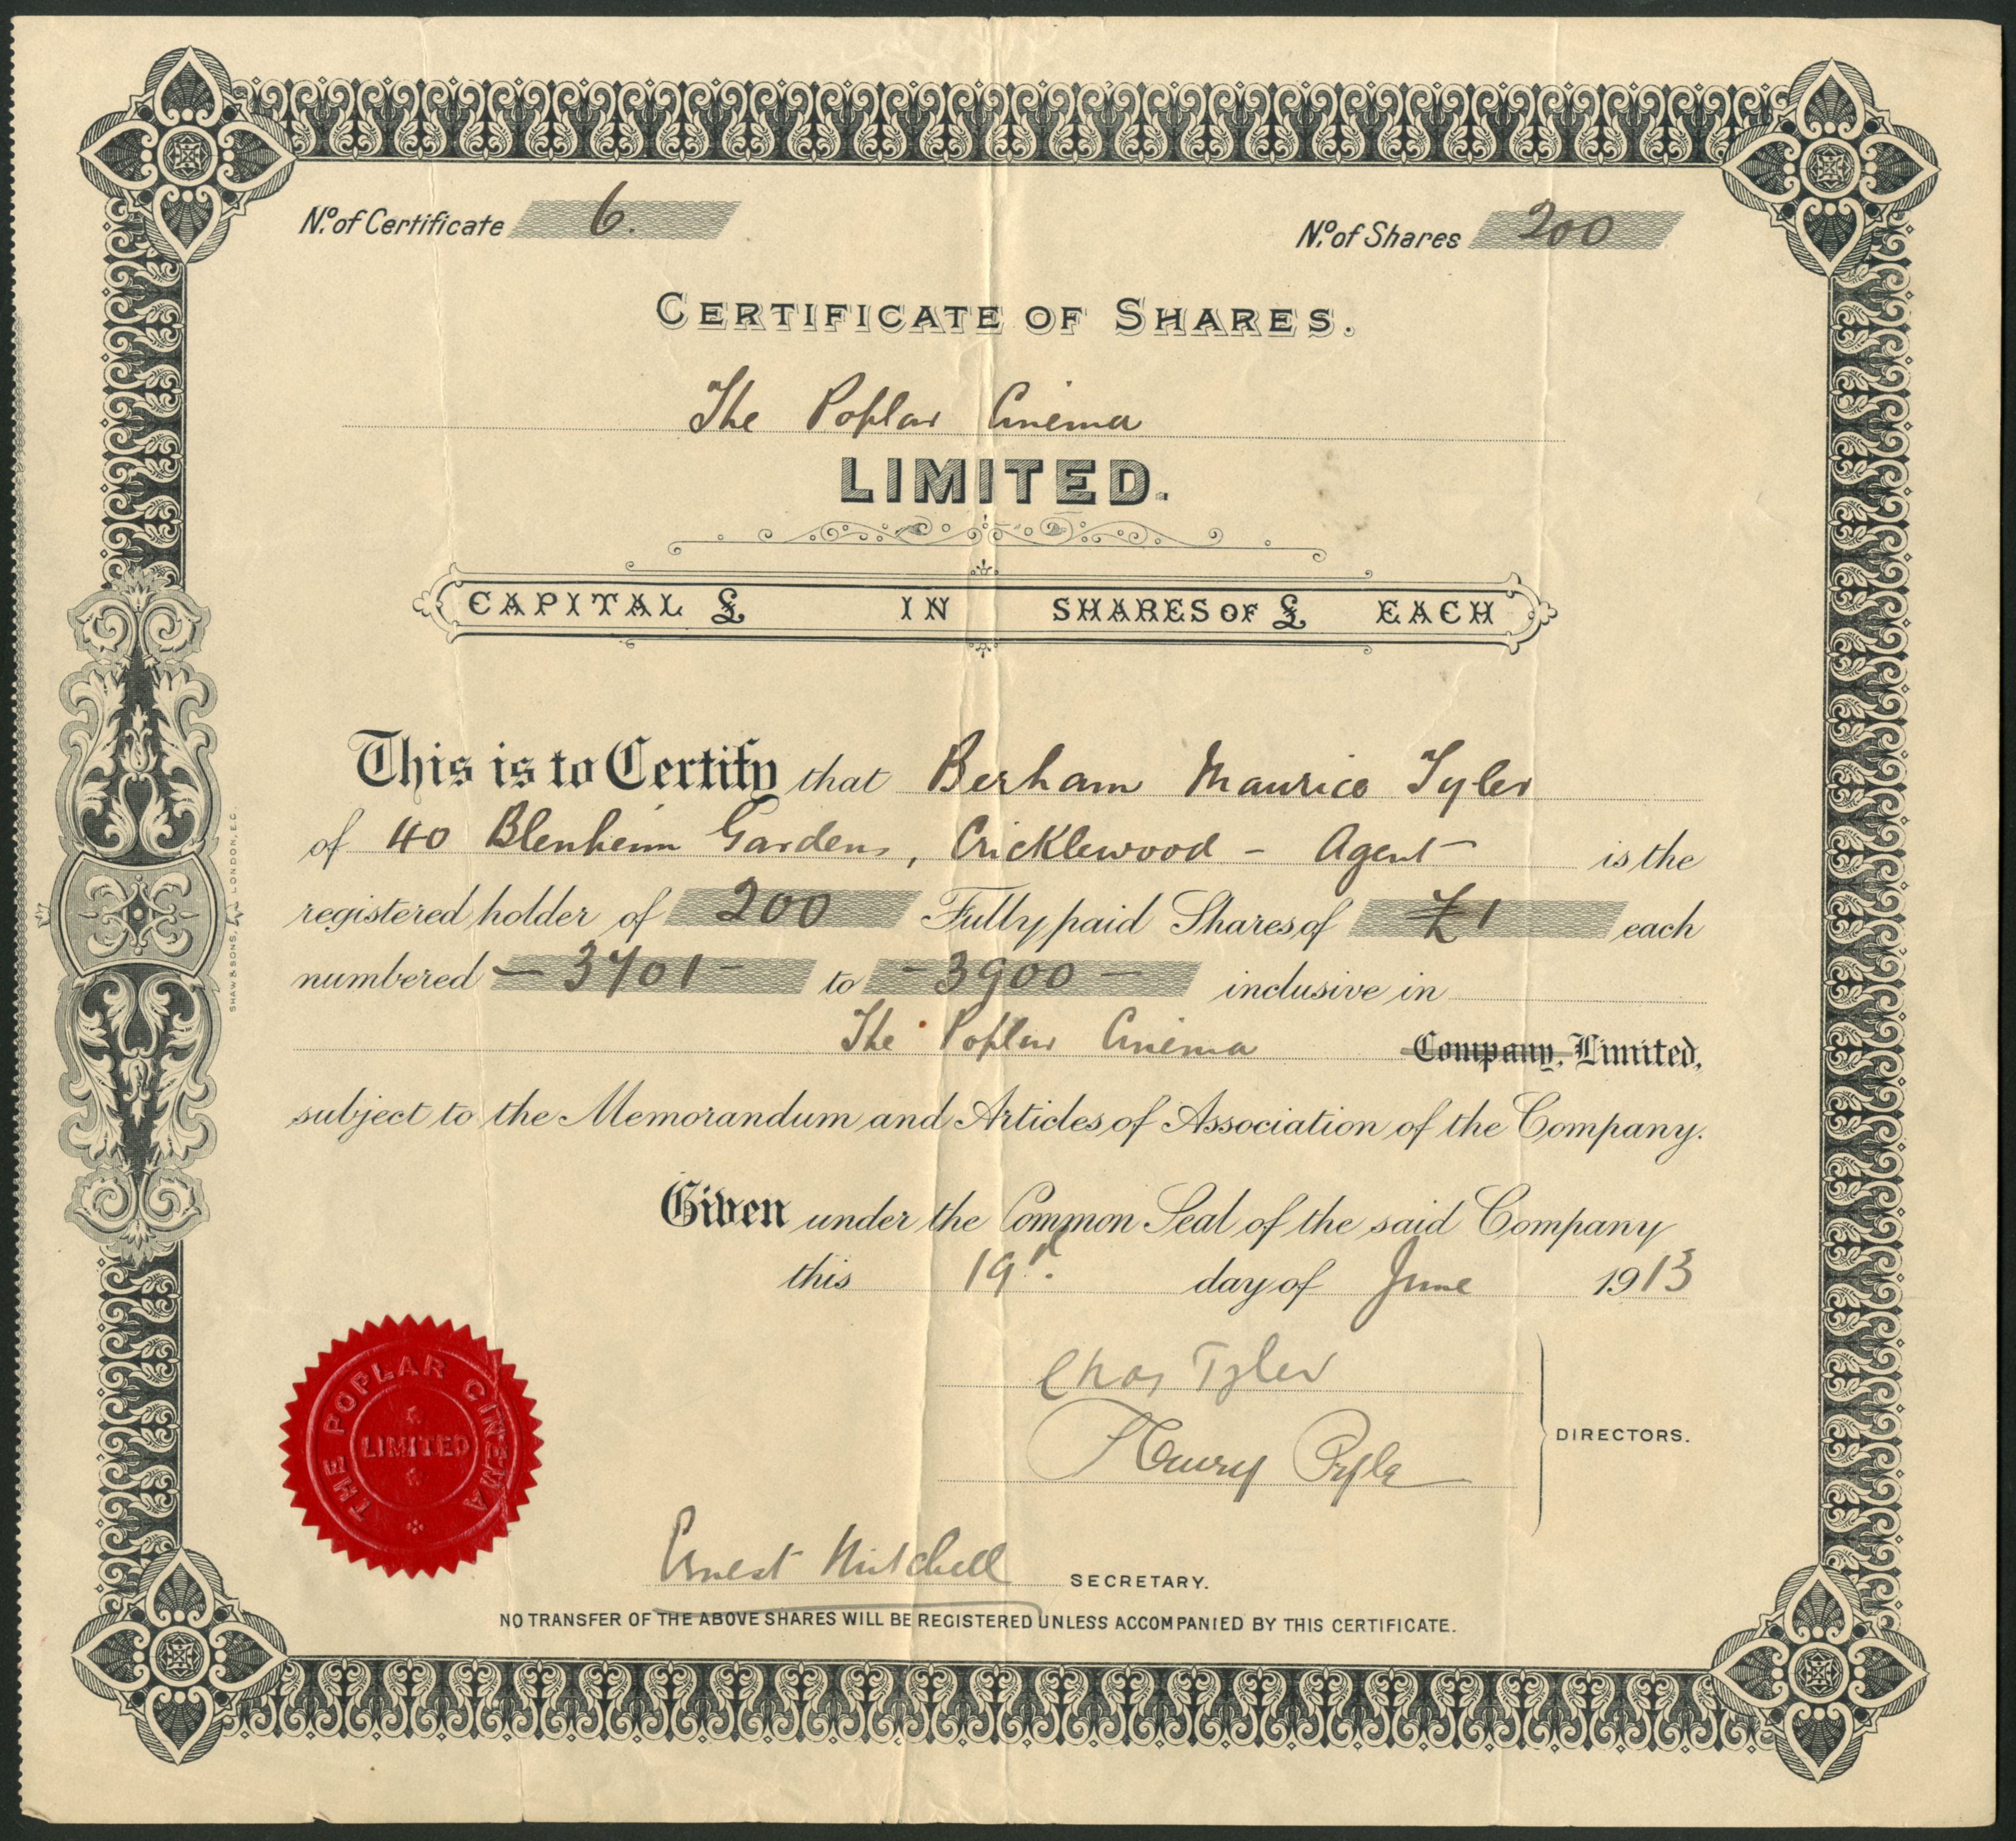 No. of Certificate 6.
No. of Shares 200
CERTIFICATE OF SHARES.
The Poplar Cinema
LIMITED.
CAPITAL £ IN SHARES OF £ EACH
This is to Certify that Berham Maurice Tyler
of 40 Blenheim Gardens, Cricklewood - Agent is the
registered holder of 200 Fully paid Shares of £1 each
numbered - 3701 - to - 3900 - inclusive in
The Poplar Cinema Company, Limited,
subject to the Memorandum and Articles of Association of the Company.
Given under the Common Seal of the said Company
this 19th day of June 1913
Chas Tyler
Henry
DIRECTORS.
Ernest Mitchell SECRETARY.
NO TRANSFER OF THE ABOVE SHARES WILL BE REGISTERED UNLESS ACCOMPANIED BY THIS CERTIFICATE.
THE POPLAR CINEMA
LIMITED
SHAW & SONS, LONDON, E.C.